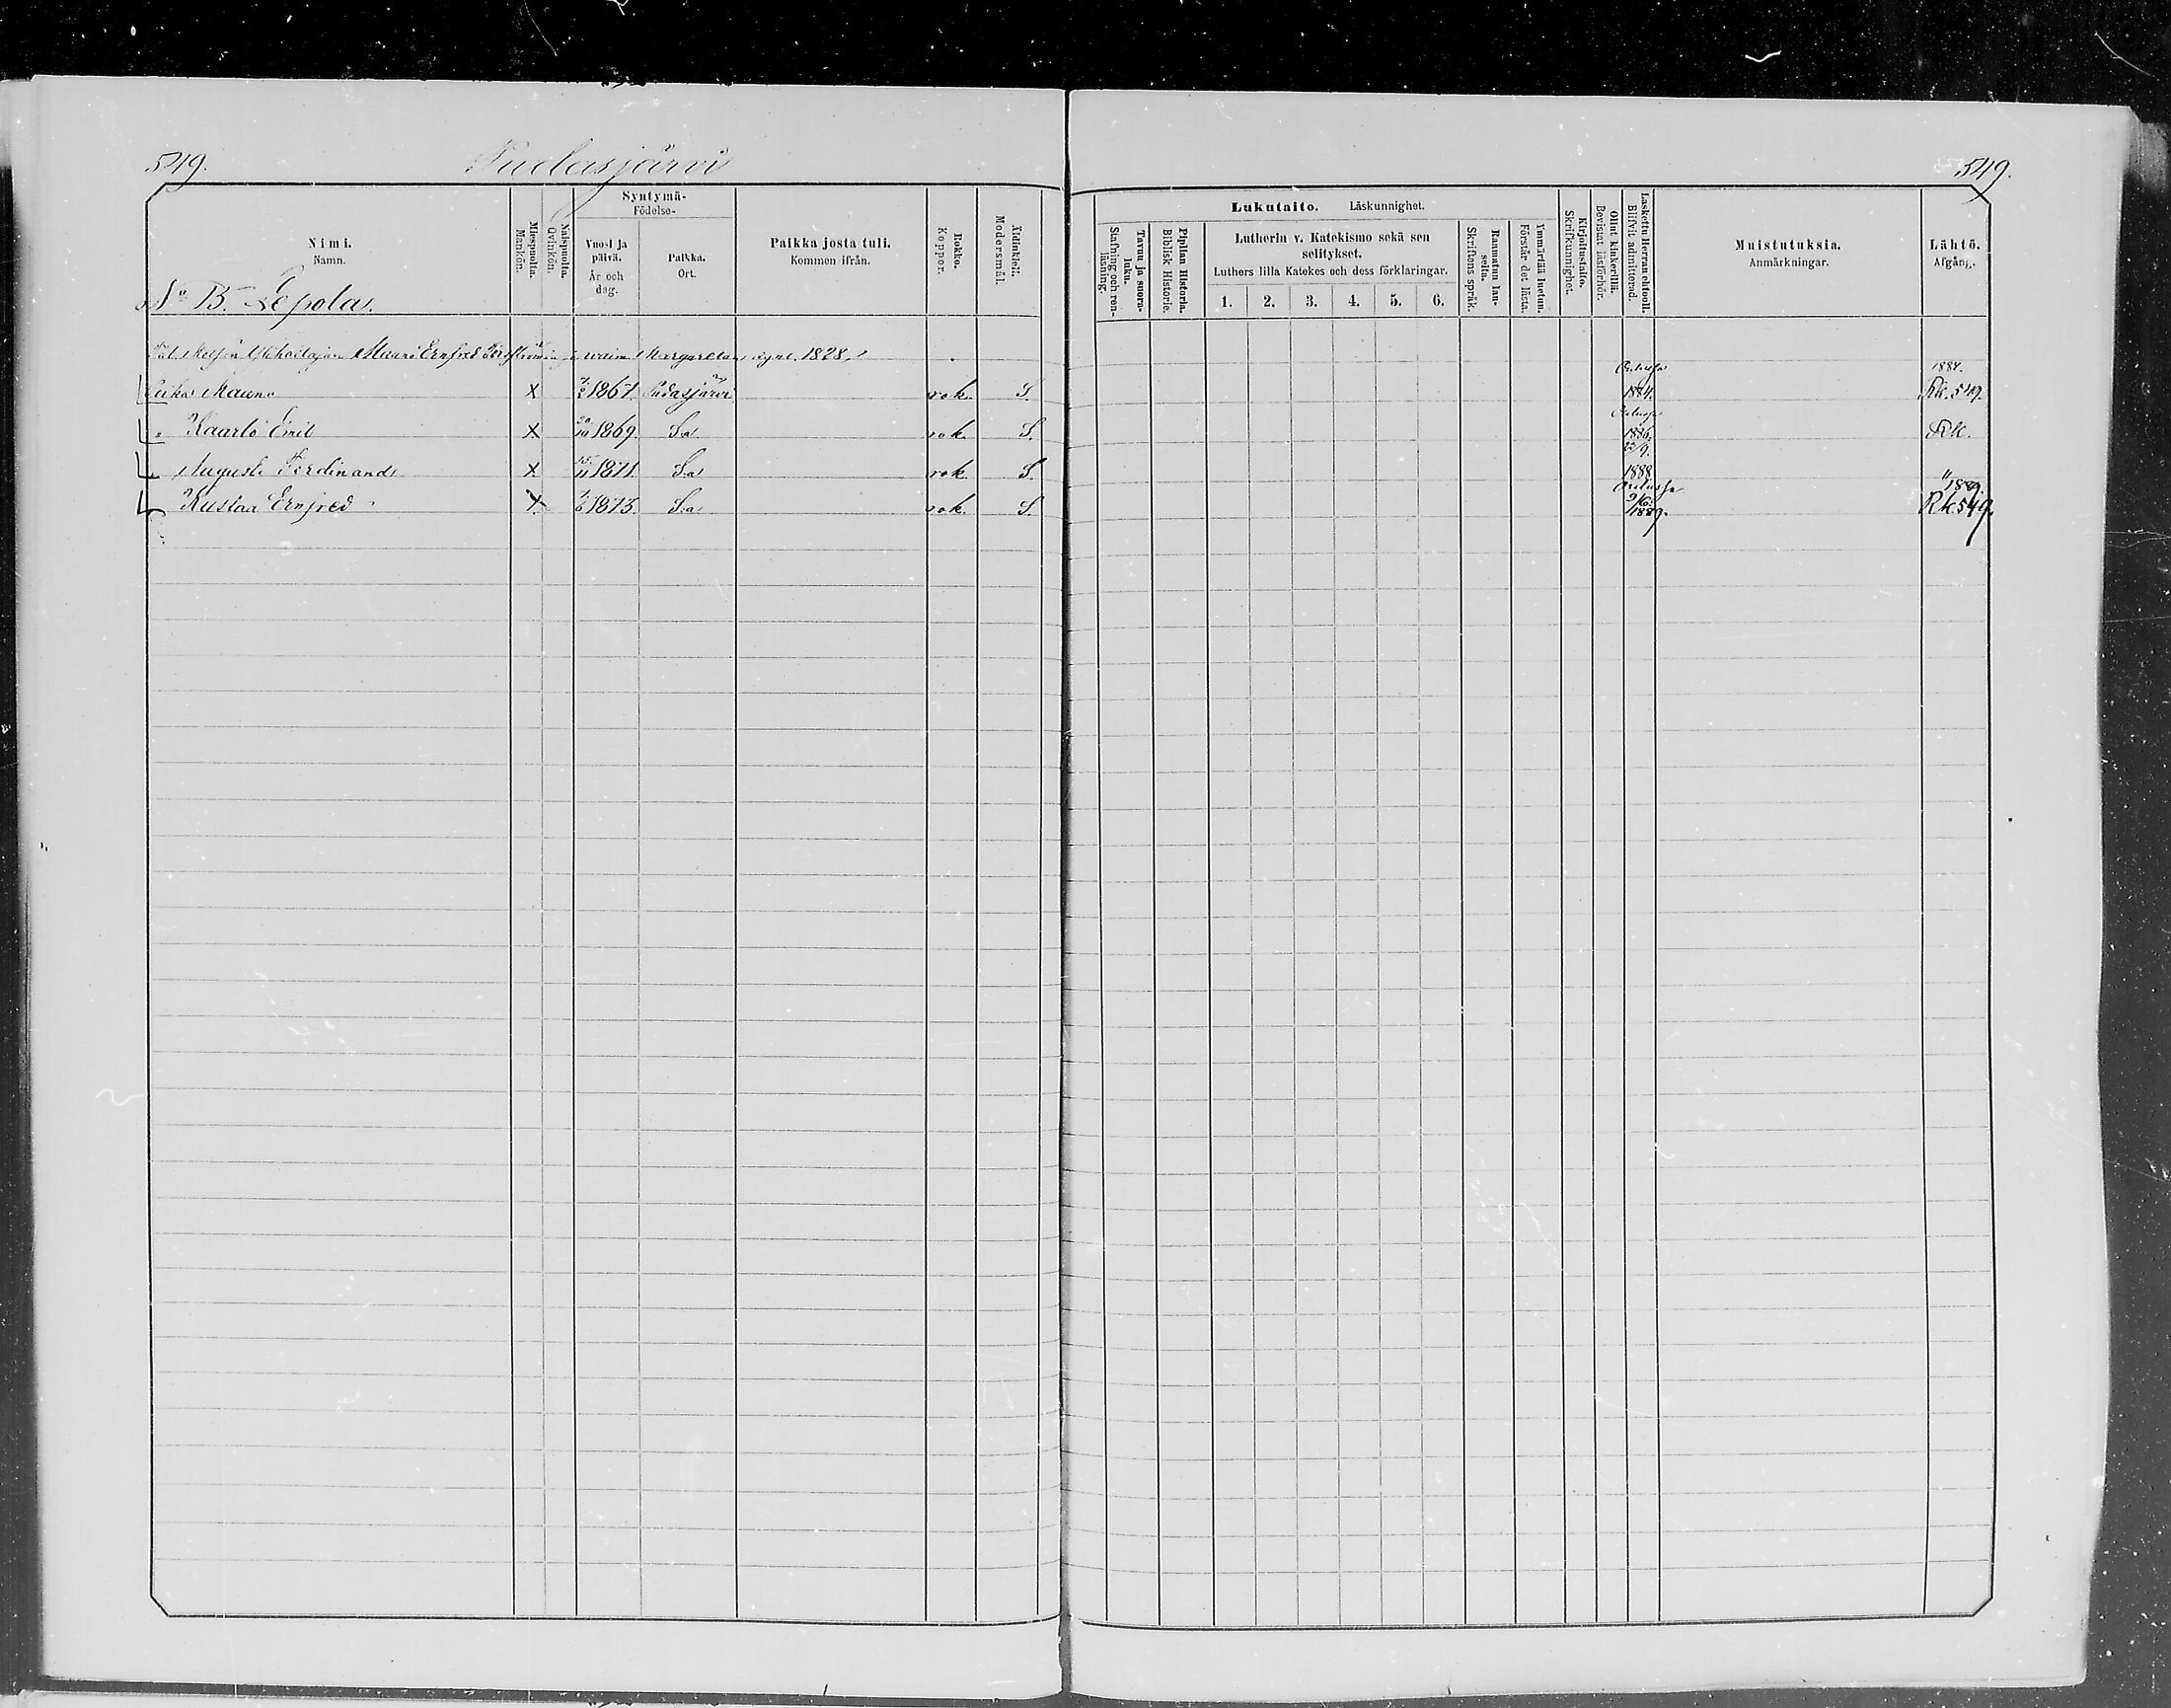 549.
Pudasjärvi
549.
Nimi.
Namn.
Miespuolia.
Mankön.
Naispuolia.
Qvinkön.
Syntymä-
Födelse-
Vuosi ja
päivä.
År och
dag.
Paikka.
Ort.
Paikka josta tuli.
Kommen ifrån.
Rokko.
Koppor.
Äidinkieli.
Modersmål.
Lukutaito. Läskunnighet.
Tavuu ja suora-
luku.
Stafning och ren-
läsning.
Piplian Historia.
Biblisk Historie.
Lutherin v. Katekismo sekä sen
selitykset.
Luthers lilla Katekes och dess förklaringar.
1. 2. 3. 4. 5. 6.
Raamatun lau-
seita.
Skriftens språk.
Ymmärtää luetun.
Förstår det lästa.
Kirjoitustaito.
Skrifkunnighet.
Ollut kinkerillä.
Bevistat läsförhör.
Laskettu Herran ehtooll.
Blifvit admitterad.
Muistutuksia.
Anmärkningar.
Lähtö.
Afgång.
No B. Lepola.
Metsän Mauno Ernfred waim. Margareta synt. 1828
Mauno X 1867. Pudasjärvi rok. S. 1884. 1884. Rk. 549.
" Kaarlo Emil X 20/10 1869. S.a rok. S. 1886. Rk.
" August Ferdinand X 15/11 1871. S.a rok. S. 1888 "
" Kustaa Ernfred X 1873. S.a rok. S. 1889. 1889. Rk. 549.